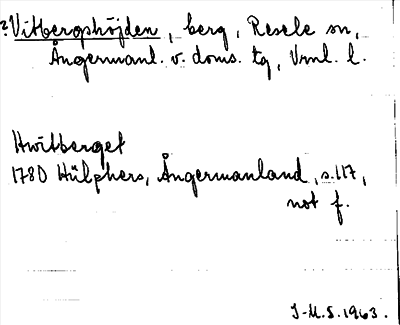 ? Vitbergshöjden, berg, Resele sn,
Ångermanl. v. doms. tg, Vrnl. l.
Hwitberget
1780 Hülphers, Ångermanland, s.117,
not f.
J-M.S. 1963.